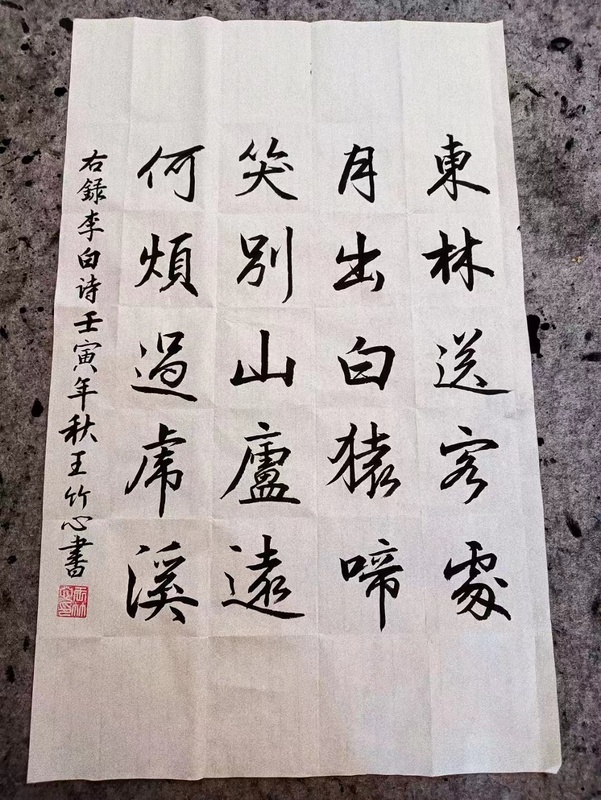 東林送客處
月出白猿啼
笑別山廬遠
何煩過虎溪
右録李白诗壬寅年秋王竹心書